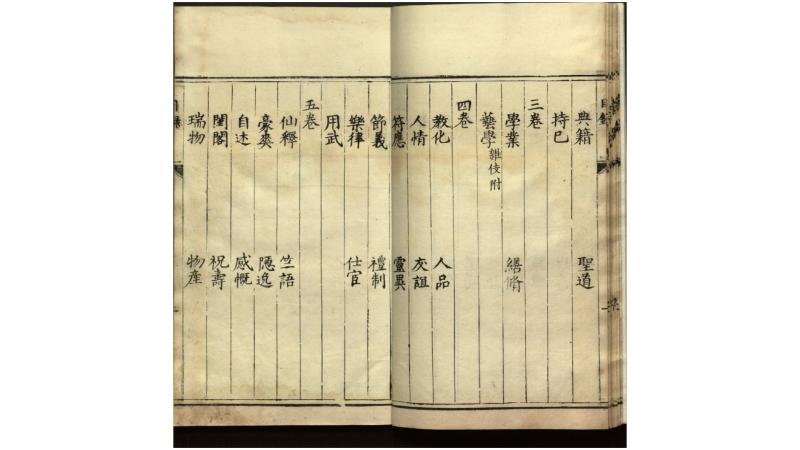 目錄
典籍 聖道
持己
三卷
學業 繕脩
藝學 雜伎附
四卷
教化 人品
人情 詛
符應 靈異
節義 禮制
樂律 仕宦
用武
五卷
仙釋 竺語
豪爽 隱逸
自述 感慨
閨閣 祝壽
瑞物 物產